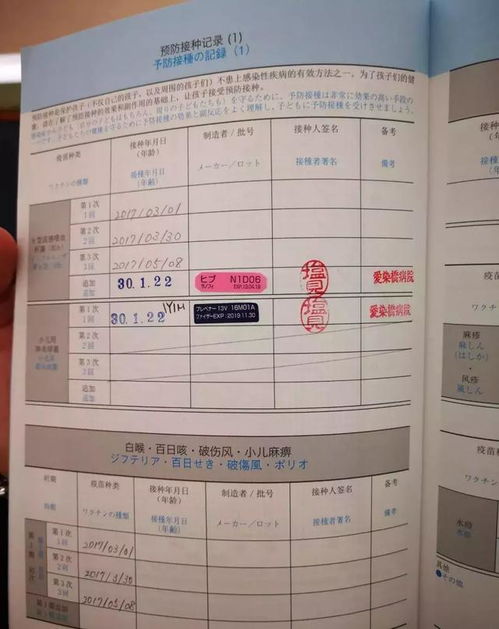 预防接种记录 (1)
予防接種の記録 (1)
预防接种是保护孩子（不仅自己的孩子，以及周围的孩子们）不患上感染性疾病的有效方法之一。为了孩子们的健
康，请在了解了预防接种的效果和副作用的基础上，让孩子接受预防接种。
疫苗种类
接种年月日
(年龄)
制造者 / 批号
接种人签名
备考
ワクチンの種類
接種年月日
(年齢)
メーカー／ロット
接種者署名
備考
第1次
1回
2017/03/01
第2次
2回
2017/03/30
第3次
3回
2017/05/08
追加
追加
30.1.22
ヒブ N1D06
サノフィ
塩見
愛染橋病院
第1次
1回
30.1.22
1Y1M
プレベナー13V 16M01A
ファイザー EXP:2019.11.30
塩見
愛染橋病院
小儿用
肺炎球菌
小児用
肺炎球菌
第2次
2回
第3次
3回
追加
追加
白喉・百日咳・破伤风・小儿麻痹
ジフテリア・百日せき・破傷風・ポリオ
时期
疫苗种类
接种年月日
(年龄)
制造者 / 批号
接种人签名
备考
時期
ワクチンの種類
接種年月日
(年齢)
メーカー／ロット
接種者署名
備考
第1次
1回
2017/03/01
第2次
2回
2017/3/30
第3次
3回
2017/05/08
疫苗
ワクチ
麻疹
麻しん
(はしか)
・
风疹
風しん
疫苗种
ワクチン
水痘
水痘
其他
●その他